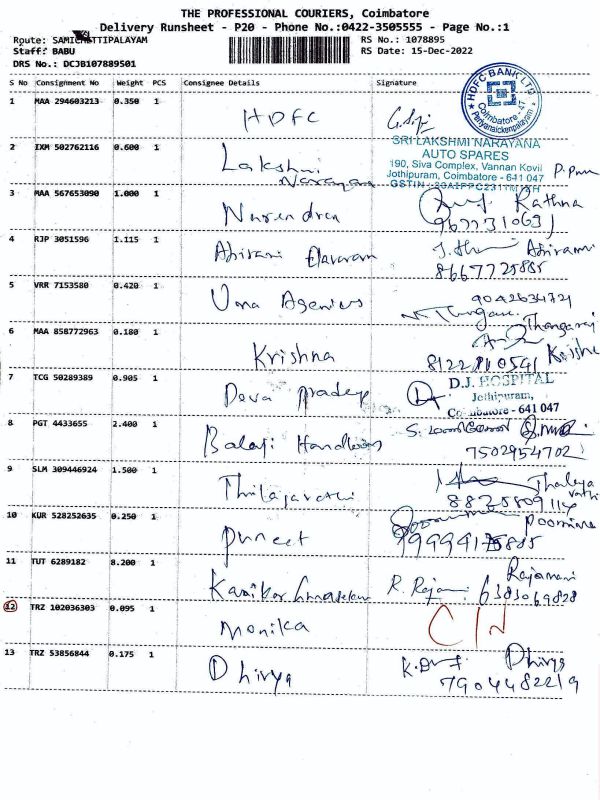 THE PROFESSIONAL COURIERS, Coimbatore
Delivery Runsheet - P20 - Phone No.:0422-3505555 - Page No.:1
Route: SAMICHETTIPALAYAM
RS No.: 1078895
Staff: BABU
RS Date: 15-Dec-2022
DRS No.: DCJB107889501
S No Consignment No Weight PCS Consignee Details Signature
1 MAA 294603213 0.350 1 HDFC
HDFC BANK LTD
Coimbatore - 47
Periyanaickenpalayam
2 IXM 502762116 0.600 1 Lakshmi
Narayan
SRI LAKSHMI NARAYANA
AUTO SPARES
190, Siva Complex, Vannan Kovil
Jothipuram, Coimbatore - 641 047
3 MAA 567653090 1.000 1 Narendren Rathna
4 RJP 3051596 1.115 1 Abirami Elavaram Abirami
8667725885
5 VRR 7153580 0.420 1 Uma Agencies 9042634721
Thangaraj
6 MAA 858772963 0.180 1 Krishna
7 TCG 50289389 0.905 1 Deva Pradeep
D.J. HOSPITAL
Jothipuram,
Coimbatore - 641 047
8 PGT 4433655 2.400 1 Balaji Handlooms
7502954702
9 SLM 309446924 1.500 1 Thilajavathi
10 KUR 528252635 0.250 1 Puneet
11 TUT 6289182 8.200 1 R. Rajam Rajamani
6383069828
12 TRZ 102036303 0.095 1 Monika C/N
13 TRZ 53856844 0.175 1 Dhivya Dhivya
7904482219